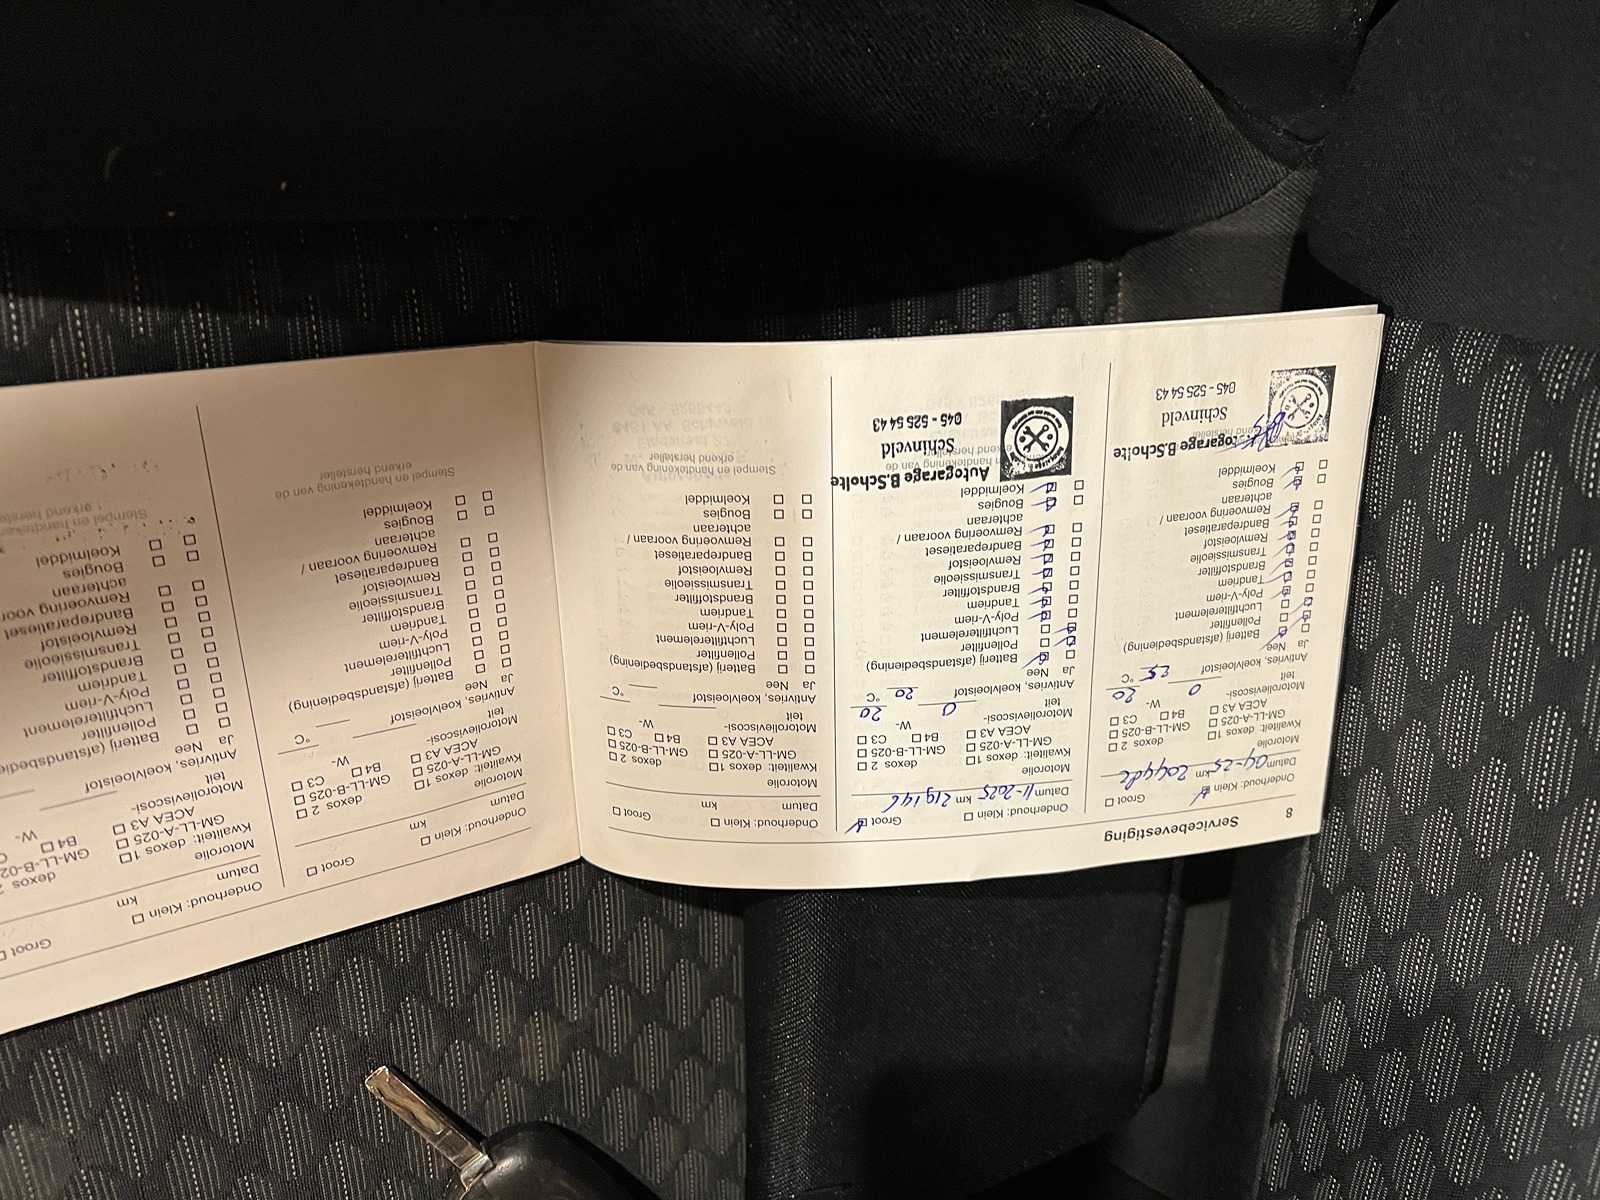 8 Servicebevestiging
Onderhoud: Klein Groot
Datum 04-25 km
Motorolie
Kwaliteit: dexos 1 dexos 2
GM-LL-A-025 GM-LL-B-025
ACEA A3 B4 C3
Motorolieviscosi- W-
teit 0 20
Antivries, koelvloeistof 25 °C
Ja Nee
Batterij (afstandsbediening)
Pollenfilter
Luchtfilterelement
Poly-V-riem
Tandriem
Brandstoffilter
Transmissieolie
Remvloeistof
Bandreparatieset
Remvoering vooraan /
achteraan
Bougies
Koelmiddel
Autogarage B.Scholte
Schinveld
045 - 525 54 43
Onderhoud: Klein Groot
Datum 11-2025 km 219146
Motorolie
Kwaliteit: dexos 1 dexos 2
GM-LL-A-025 GM-LL-B-025
ACEA A3 B4 C3
Motorolieviscosi- W-
teit 0 20
Antivries, koelvloeistof 20 °C
Ja Nee
Batterij (afstandsbediening)
Pollenfilter
Luchtfilterelement
Poly-V-riem
Tandriem
Brandstoffilter
Transmissieolie
Remvloeistof
Bandreparatieset
Remvoering vooraan /
achteraan
Bougies
Koelmiddel
Autogarage B.Scholte
Schinveld
045 - 525 54 43
Onderhoud: Klein Groot
Datum km
Motorolie
Kwaliteit: dexos 1 dexos 2
GM-LL-A-025 GM-LL-B-025
ACEA A3 B4 C3
Motorolieviscosi- W-
teit
Antivries, koelvloeistof °C
Ja Nee
Batterij (afstandsbediening)
Pollenfilter
Luchtfilterelement
Poly-V-riem
Tandriem
Brandstoffilter
Transmissieolie
Remvloeistof
Bandreparatieset
Remvoering vooraan /
achteraan
Bougies
Koelmiddel
Stempel en handtekening van de
erkend hersteller
Onderhoud: Klein Groot
Datum km
Motorolie
Kwaliteit: dexos 1 dexos 2
GM-LL-A-025 GM-LL-B-025
ACEA A3 B4 C3
Motorolieviscosi- W-
teit
Antivries, koelvloeistof °C
Ja Nee
Batterij (afstandsbediening)
Pollenfilter
Luchtfilterelement
Poly-V-riem
Tandriem
Brandstoffilter
Transmissieolie
Remvloeistof
Bandreparatieset
Remvoering vooraan /
achteraan
Bougies
Koelmiddel
Stempel en handtekening van de
erkend hersteller
Onderhoud: Klein Groot
Datum km
Motorolie
Kwaliteit: dexos 1 dexos
GM-LL-A-025 GM-LL-B-02
ACEA A3 B4
Motorolieviscosi- W-
teit
Antivries, koelvloeistof
Ja Nee
Batterij (afstandsbedie
Pollenfilter
Luchtfilterelement
Poly-V-riem
Tandriem
Brandstoffilter
Transmissieolie
Remvloeistof
Bandreparatieset
Remvoering voor
achteraan
Bougies
Koelmiddel
Stempel en handteken
erkend herste